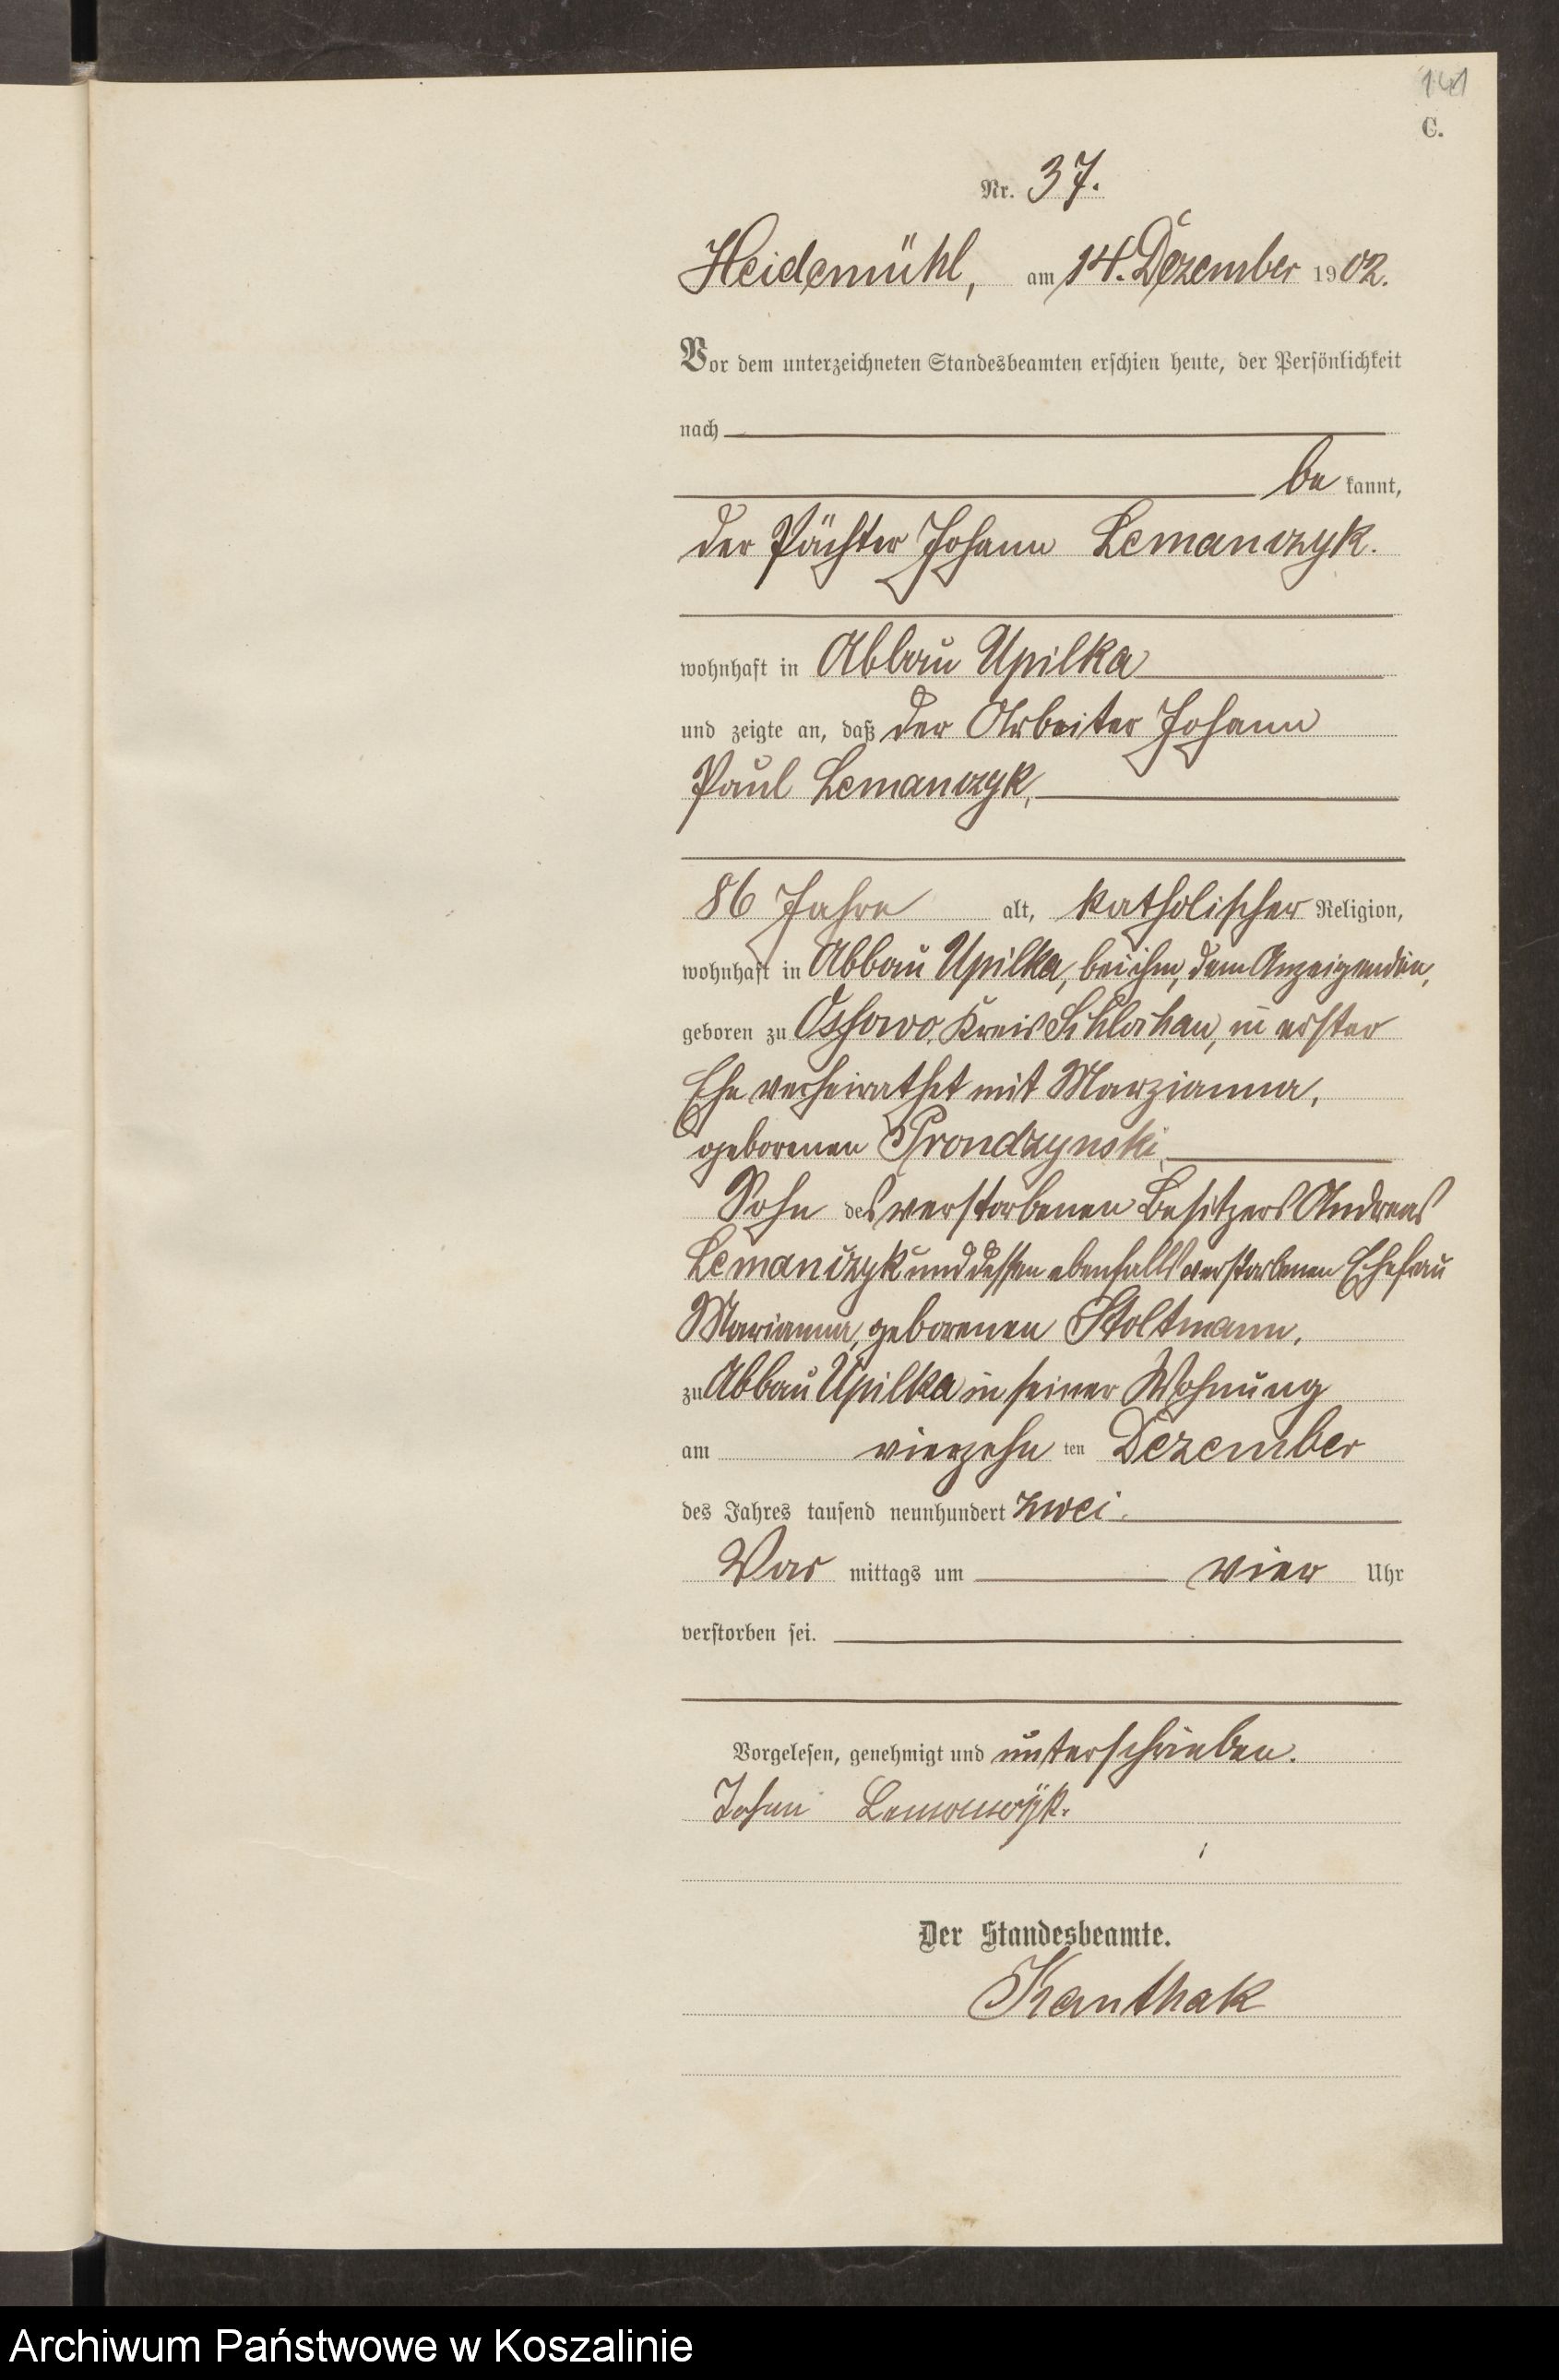 141
C.
Nr. 37.
Heidemühl, am 14. Dezember 1902.
Vor dem unterzeichneten Standesbeamten erschien heute, der Persönlichkeit
nach
be kannt,
der Pächter Johann Lemanczyk.
wohnhaft in Abbau Upilka
und zeigte an, daß der Arbeiter Johann
Paul Lemanczyk,
86 Jahre alt, katholischer Religion,
wohnhaft in Abbau Upilka, bei ihm, dem Anzeigenden,
geboren zu Ossowo, Kreis Schlochau, in erster
Ehe verheirathet mit Marzianna,
geborenen Prondzynski,
Sohn des verstorbenen Besitzers Andreas
Lemanczyk und dessen ebenfalls verstorbenen Ehefrau
Marianna, geborenen Stoltmann,
zu Abbau Upilka in seiner Wohnung
am vierzehn ten Dezember
des Jahres tausend neunhundert zwei
Vor mittags um vier Uhr
verstorben sei.
Vorgelesen, genehmigt und unterschrieben.
Johan Lemanczyk.
Der Standesbeamte.
Kanthak
Archiwum Państwowe w Koszalinie